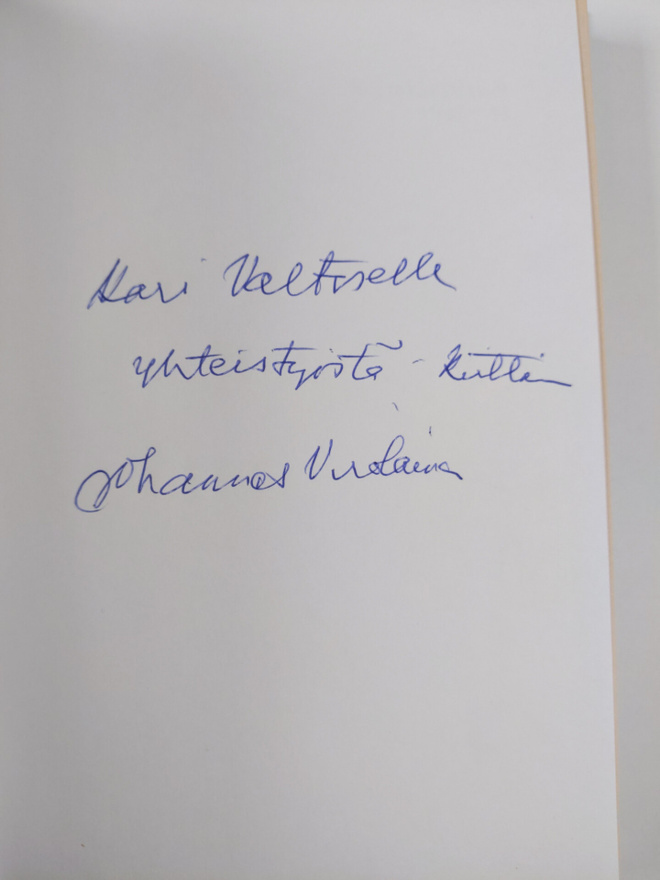 Kari Valtoselle
yhteistyöstä - kiittäen
Johannes Virolainen